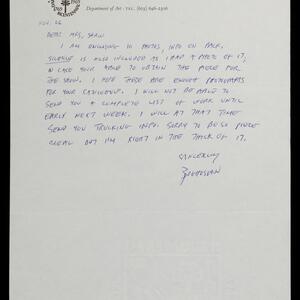 1769 1969
BICENTENNIAL
Department of Art · TEL. (603) 646-2306
NOV. 26
DEAR MRS. SHAW
I AM ENCLOSING 11 PHOTOS, INFO ON BACK,
SILENUS IS ALSO INCLUDED AS I HAD A PHOTO OF IT,
IN CASE YOUR ABLE TO OBTAIN THE PIECE FOR
THE SHOW. I HOPE THESE ARE ENOUGH PHOTOGRAPHS
FOR YOUR CATALOGUE. I WILL NOT BE ABLE TO
SEND YOU A COMPLETE LIST OF WORK UNTIL
EARLY NEXT WEEK. I WILL AT THAT TIME
SEND YOU TRUCKING INFO. SORRY TO BE SO PIECE
MEAL BUT I'M RIGHT IN THE THICK OF IT.
SINCERELY